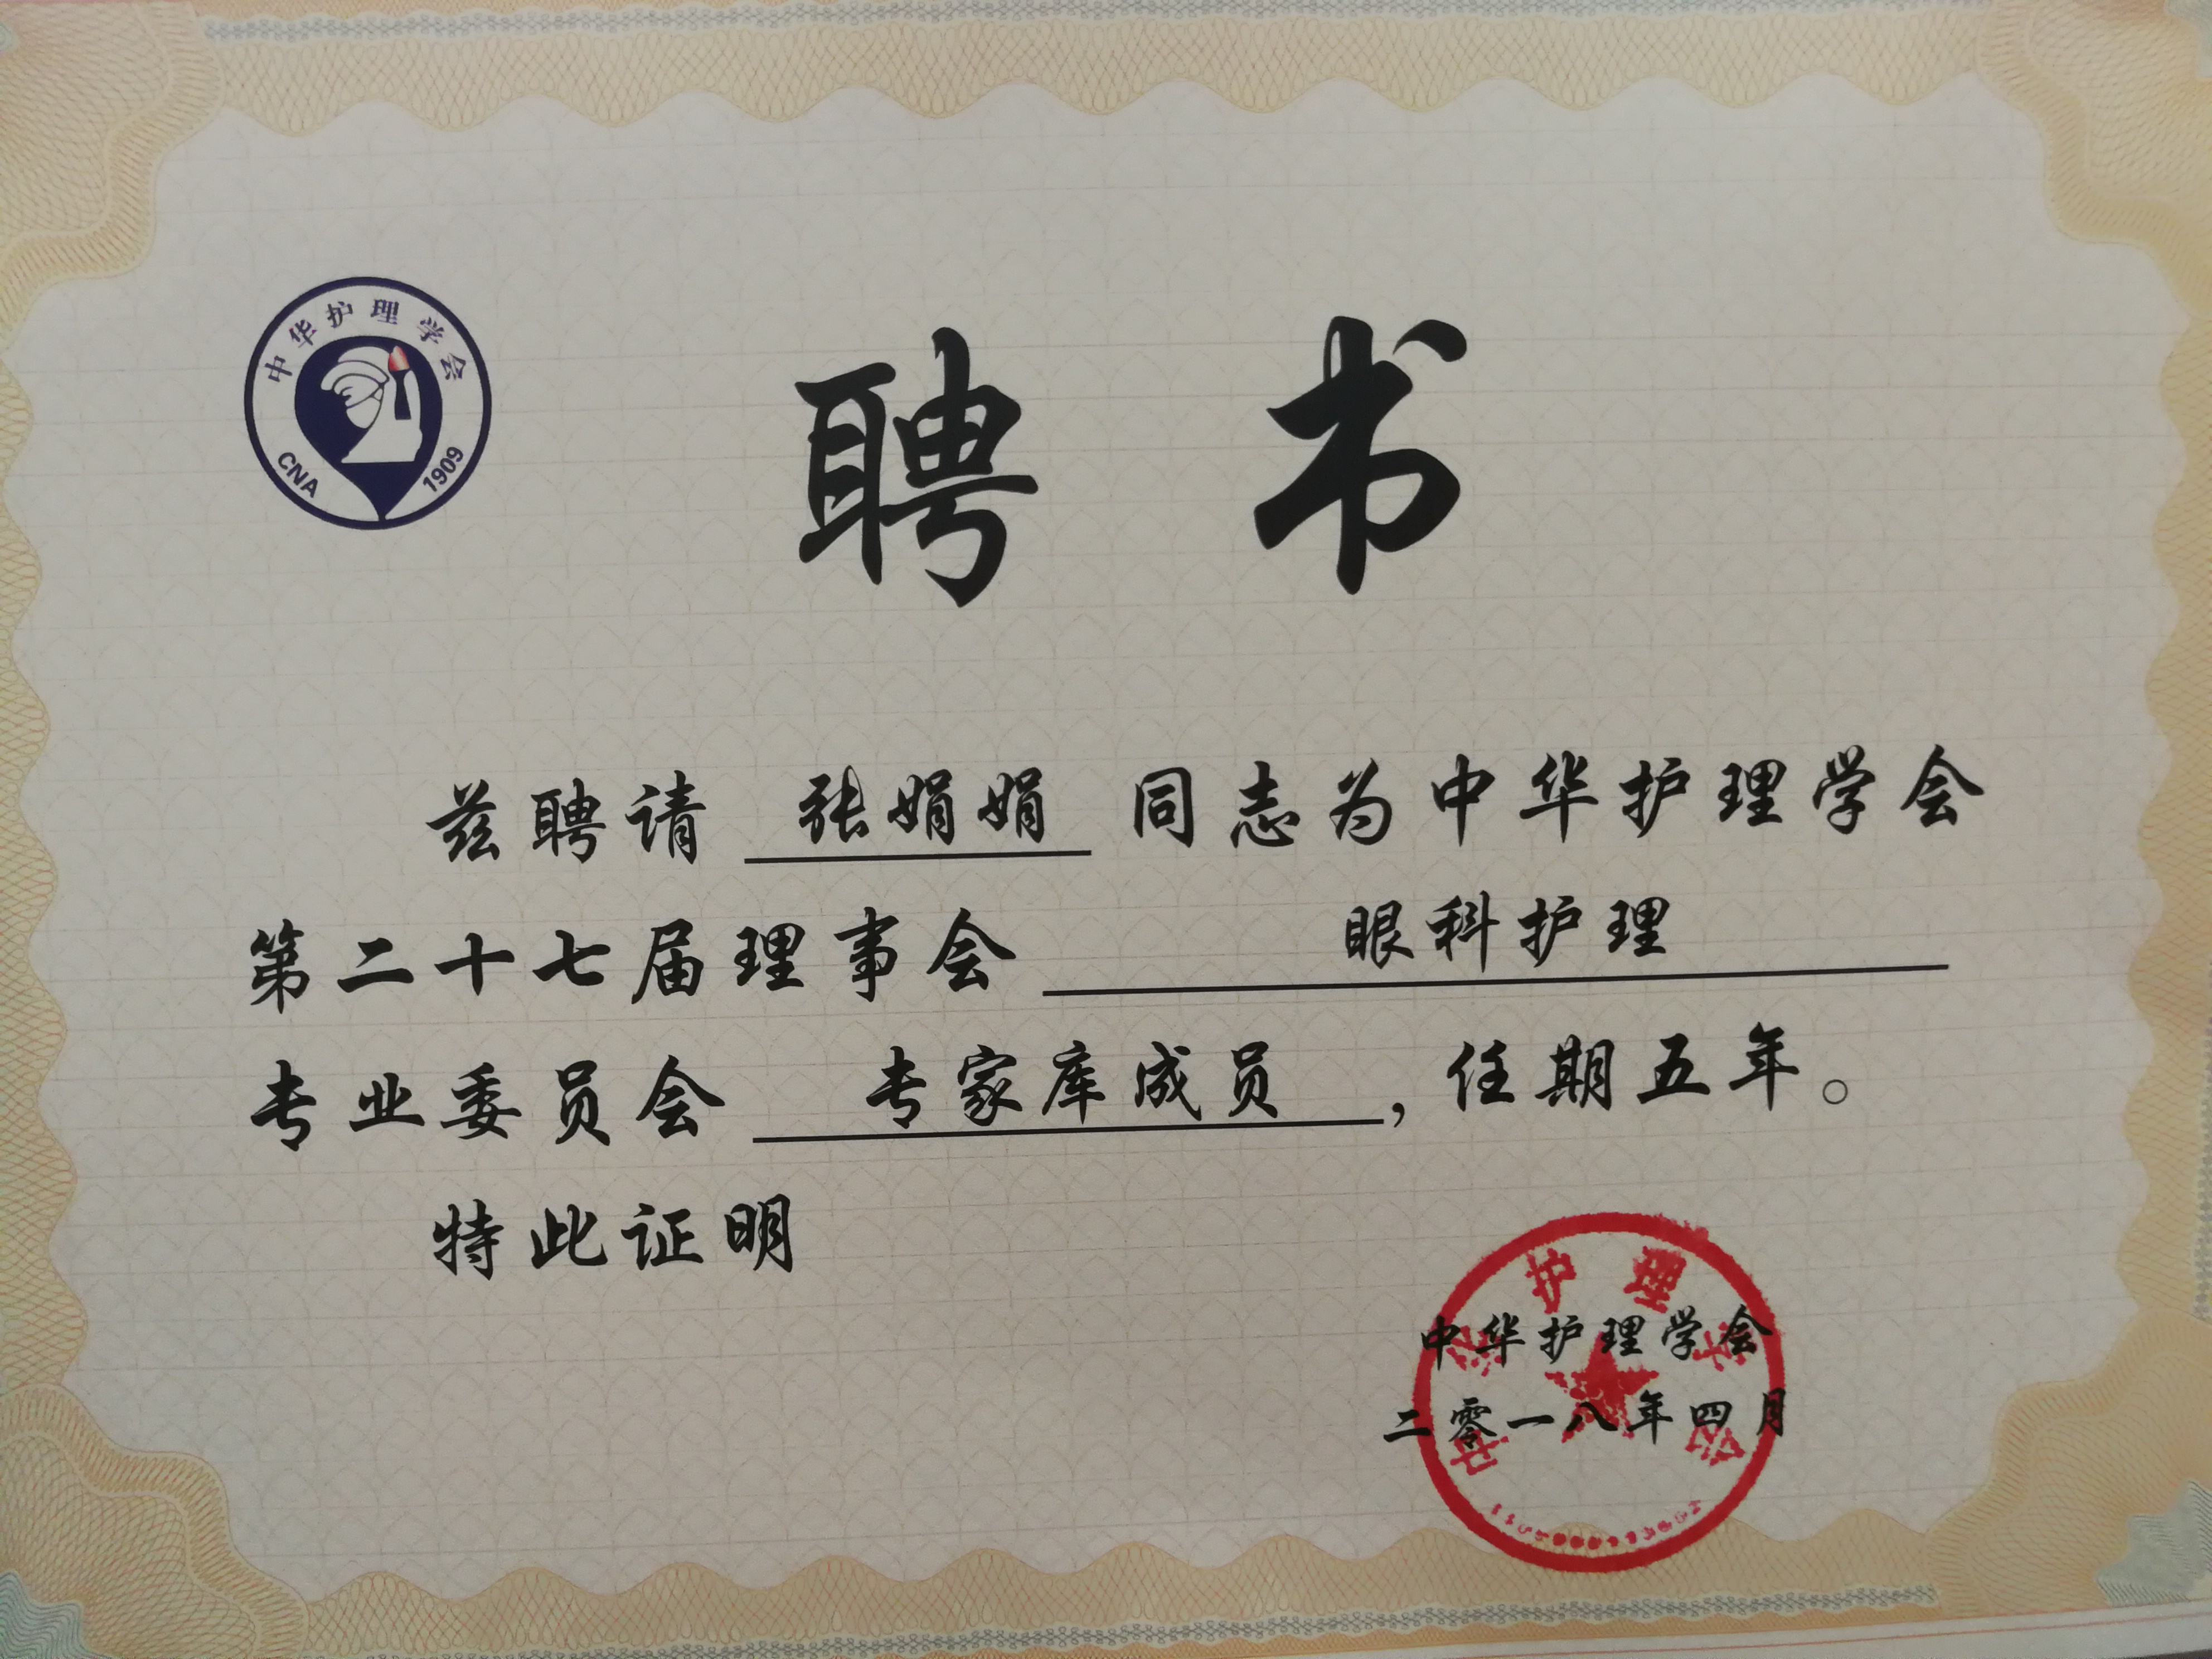 中华护理学会
CNA 1909
聘书
兹聘请 张娟娟 同志为中华护理学会
第二十七届理事会 眼科护理
专业委员会 专家库成员，任期五年。
特此证明
中华护理学会
中华护理学会
二零一八年四月